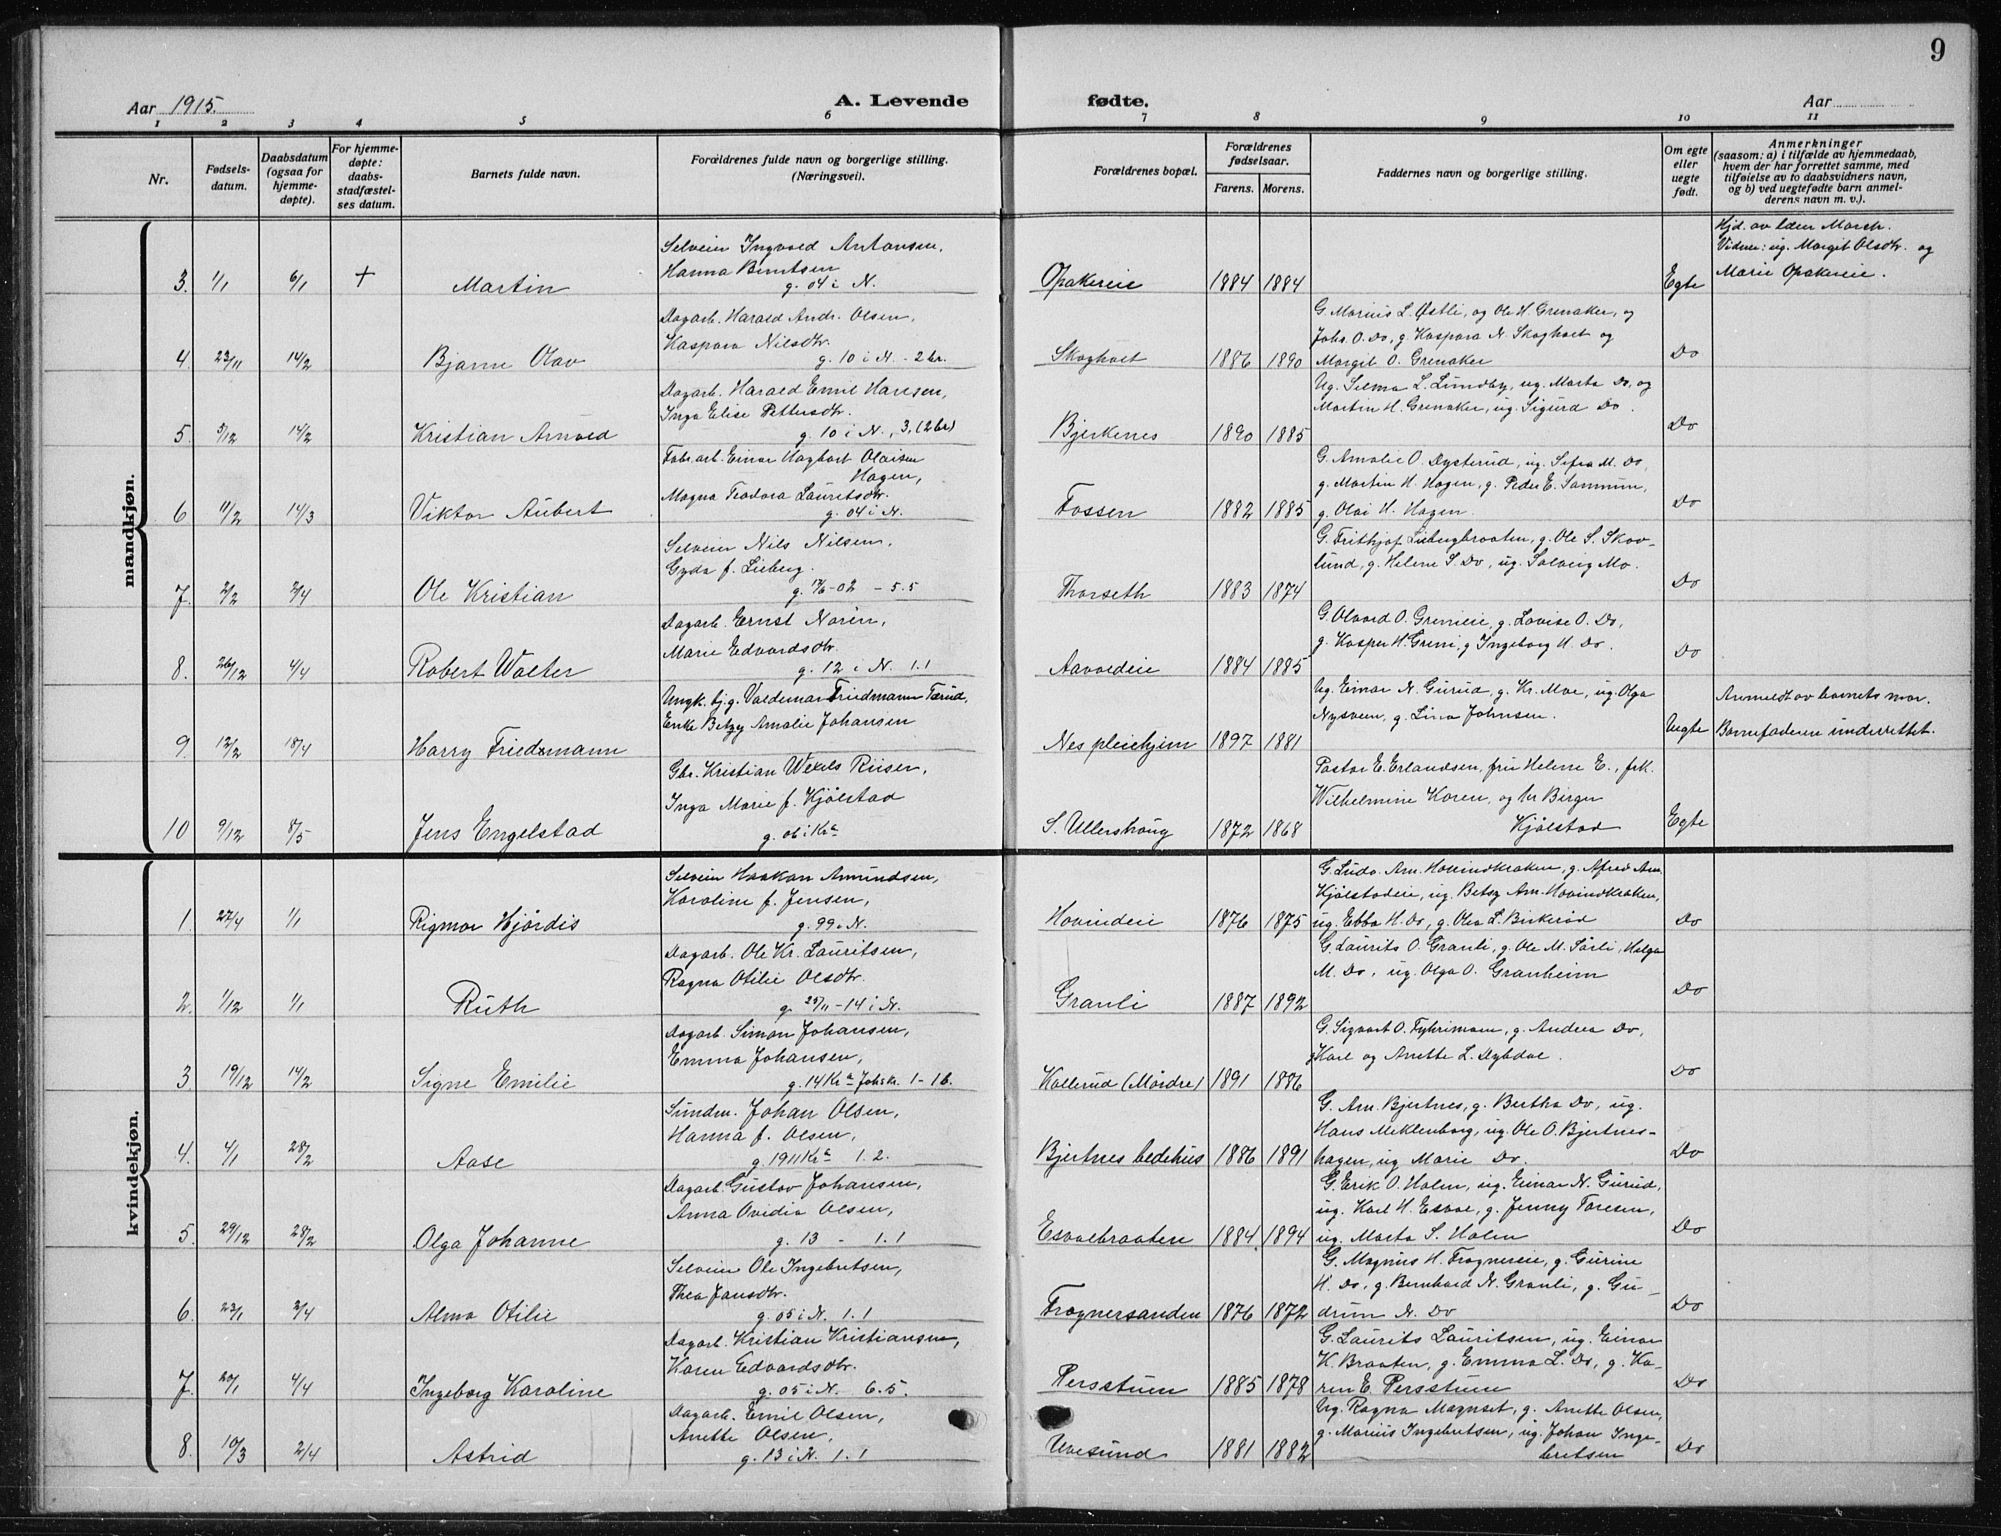 9
Aar 1915.
A. Levende fødte.
Aar
1 2 3 4 5 6 7 8 9 10 11
Nr.
Fødsels-
datum.
Daabsdatum
(ogsaa for
hjemme-
døpte).
For hjemme-
døpte:
daabs-
stadfæstel-
ses datum.
Barnets fulde navn.
Forældrenes fulde navn og borgerlige stilling.
(Næringsvei).
Forældrenes bopæl.
Forældrenes
fødselsaar.
Farens. Morens.
Faddernes navn og borgerlige stilling.
Om egte
eller
uegte
født.
Anmerkninger
(saasom: a) i tilfælde av hjemmedaab,
hvem der har forrettet samme, med
tilføielse av to daabsvidners navn,
og b) ved uegtefødte barn anmel-
derens navn m. v.).
mandkjøn.
Selveier Ingvald Antonsen,
Hanna Berntsen
g. 04 i N.
3. 1/1 6/1 + Martin
Opakereie 1884 1884 Egte
Hjd. av lærer March.
Vidner: ug. Margit Olsdtr. og
Marie Opakereie.
Dagarb. Harald Andr. Olsen,
Kaspara Nilsdtr.
g. 10 i N. - 2 br.
4. 23/11 14/2 Bjarne Olav
Skogholt 1886 1890
G. Marius L. Østli, og Ole H. Grenaker, og
Johs. O. Do, g. Kaspara N. Skogholt og
Margit O. Grenaker
Do
Dagarb. Harald Emil Hansen,
Inga Elise Pettersdtr.
g. 10 i N., 3, (2 br)
5. 5/12 14/2 Kristian Arnold
Bjerkenes 1890 1885
Ug. Selma L. Lundby, ug. Marta Do, og
Martin H. Grenaker, ug. Sigurd Do.
Do
Fabr.arb. Einar Hagbart Olaisen
Hagen,
Magna Teodora Lauritsdtr.
g. 04 i N.
6 11/2 14/3 Viktor Aubert
Fossen 1882 1885
G. Amalie O. Dysterud, ug. Sefra M. Do,
g. Marten H. Hagen, g. Peder E. Sannum,
g. Olai H. Hagen.
Do
Selveier Nils Nilsen,
Gyda f. Lieberg.
g. 17/6-02 - 5.5
7. 2/2 2/4 Ole Kristian
Thorseth 1883 1874
G. Frithjof Liebergbraaten, g. Ole S. Skov-
lund, g. Helene S. Do, ug. Solveig Mo.
Do
Dagarb. Ernst Norén,
Marie Edvardsdtr.
g. 12 i N. 1.1
8. 26/12 4/4 Robert Walter
Aavoldeie 1884 1885
G. Olvard O. Grenieie, g. Lovise O. Do,
g. Kasper H. Greni, g Ingeborg H. Do.
Do
Ungk. bj. g. Valdemar Friedmann Tærud,
Enke Betzy Amalie Johansen
9 12/2 18/4 Harry Friedemann
Nes pleiehjem 1897 1881
Ug. Einar N. Gurud, g. Kr. Moe, ug. Olga
Nysveen, g. Lina Johnsen.
Uegte
Anmeldt av barnets mor.
Barnefaderen underrettet.
Gbr. Kristian Wexels Riiser,
Inga Marie f. Kjølstad
g. 06 i Kr.a
10 9/12 8/5 Jens Engelstad
S. Ullershoug 1872 1868
Pastor E. Erlandsen, fru Helene E., frk.
Wilhelmine Koren, og hr Birger
Kjølstad
Egte
kvindekjøn.
Selveier Haakon Amundsen,
Karoline f. Jensen,
g. 99 i N.
1 27/4 1/1 Rigmor Hjørdis
Hovindeie 1876 1875
G. Ludv. Am. Hovindkraken, g. Alfred Am.
Kjølstadeie, ug. Betsy Am. Hovindkraken,
ug. Ebba H. Do, g. Olea L. Birkerød
Do
Dagarb. Ole Kr. Lauritsen,
Ragna Otilie Olsdtr.
g. 29/11 - 14 i N.
2. 1/12 1/1 Ruth
Granli 1887 1892
G. Laurits O. Granli, g. Ole M. Sørli, Helga
M. Do, ug. Olga O. Granheim
Do
Dagarb. Simon Johansen,
Emma Johansen,
g. 14 Kr.a Johsk. 1-1b.
3 19/12 14/2 Signe Emilie
Kallerud (Mørdre) 1891 1886
G. Sigvart O. Fyhrimoen, g. Andrea Do,
g Karl og Anette L. Dybdal.
Do
Sundm. Johan Olsen,
Hanna f. Olsen,
g. 1911 Kr.a 1.2.
4. 4/1 28/2 Aase
Bjertnes bedehus 1886 1891
G. Am. Bjertnes, g. Bertha Do, ug.
Hans Meklenborg, ug. Ole O. Bjertnes-
hagen, ug Marie Do.
Do
Dagarb. Gustav Johansen,
Anna Ovidia Olsen,
g. 13 - 1.1
5. 29/12 28/2 Olga Johanne
Esvalbraaten 1884 1894
G. Erik O. Holen, ug. Einar N. Gurud,
ug. Karl H. Esval, g. Jenny Toresen,
ug. Marta S. Holen
Do
Selveier Ole Ingebretsen,
Thea Jansdtr.
g. 05 i N. 1.1
6. 23/1 2/4 Alma Otilie
Frognersanden 1876 1872
G. Magnus H. Frognereie, g. Gurine
H. Do, g. Bernhard N. Granli, g. Gu-
drun N. Do
Do
Dagarb. Kristian Kristiansen,
Karen Edvardsdtr.
g. 05 i N. 6.5.
7. 20/1 4/4 Ingeborg Karoline
Persstuen 1885 1878
G. Laurits Lauritsen, ug. Einar
K. Braaten, g. Emma L. Do, g. Ka-
ren E. Persstuen
Do
Dagarb. Emil Olsen,
Anette Olsen,
g. 13 i N. 1.1
8. 10/3 2/4 Astrid
Uvesund 1881 1882
Ug. Ragna Magnset, g. Anette Olsen,
g. Marius Ingebretsen, ug. Johan Inge-
bretsen
Do